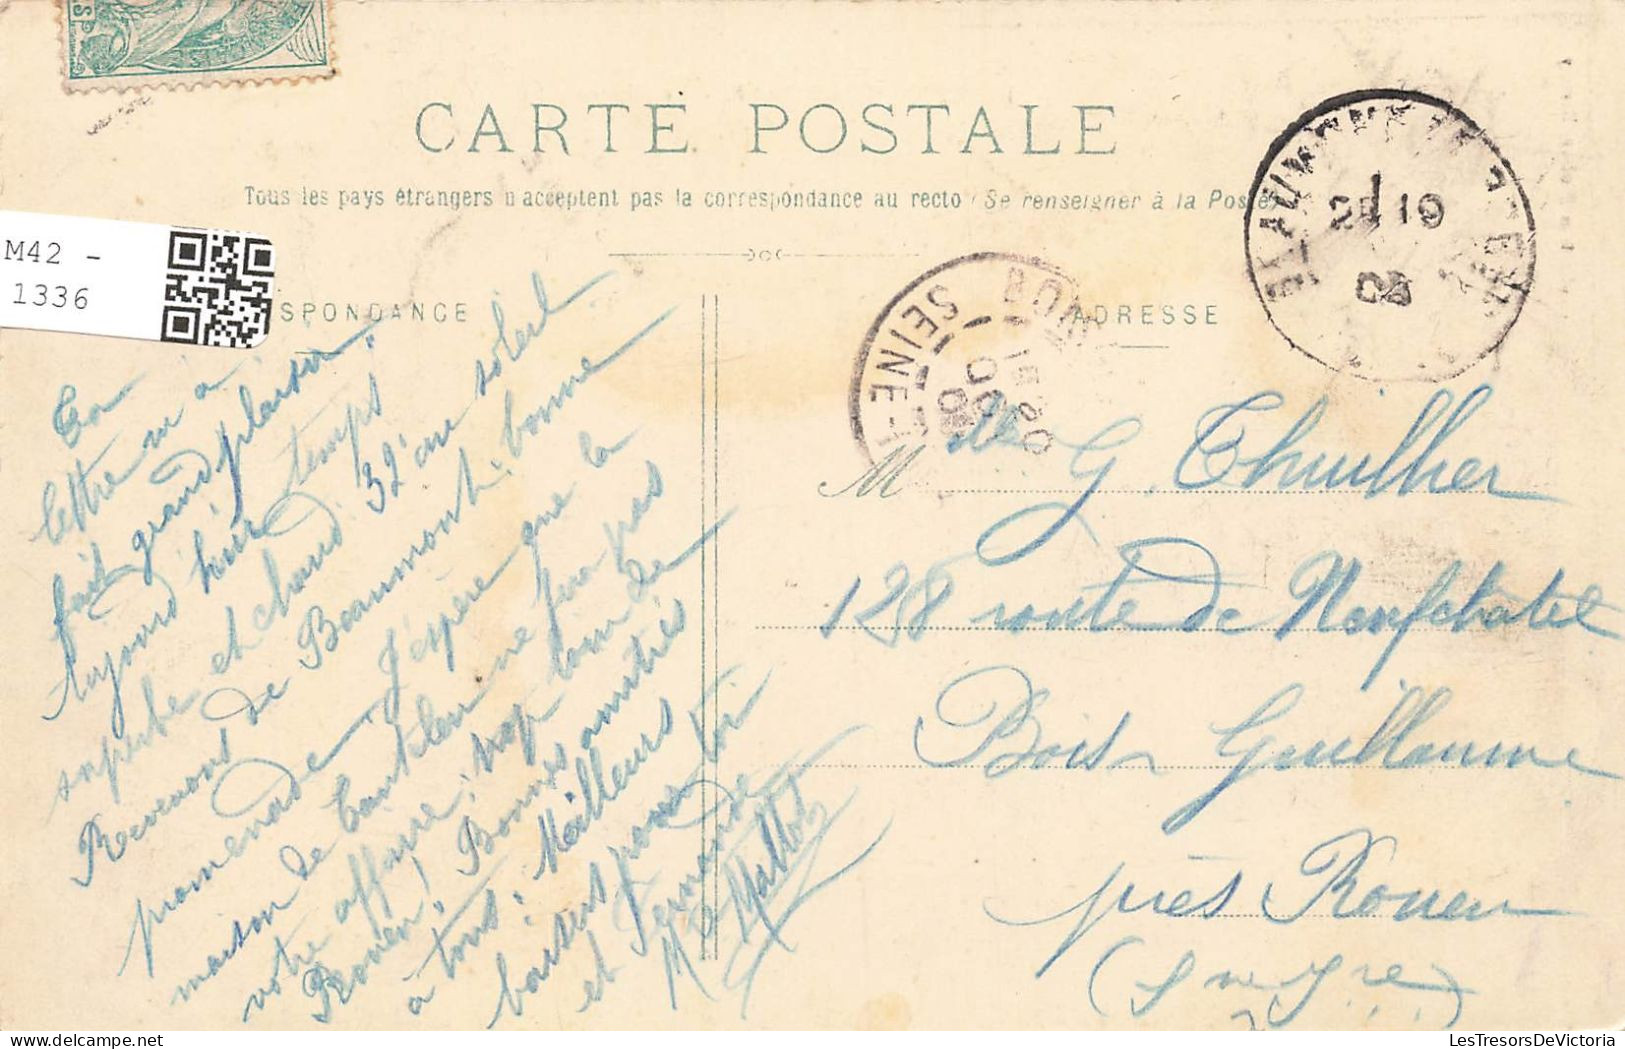 CARTE POSTALE
Tous les pays étrangers n'acceptent pas la correspondance au recto (Se renseigner à la Poste)
M42 -
1336
SPONDANCE
ADRESSE
SEINE-I
15
20
25 19
05
Ta
lettre m'a
fait grand plaisir.
Aujourd'hui temps
superbe et chaud 32° au soleil
Revenons de Beaumont: bonne
promenade. J'espère que la
maison de Canteleu ne fera pas
votre affaire: trop loin de
Rouen! Bonnes amitiés
à tous: Meilleurs
baisers pour toi
et Fernande
M Mallet
Mlle G. Thuilher
128 route de Neufchatel
Bois Guillaume
près Rouen
(Sne Ire)
LesTresorsDeVictoria